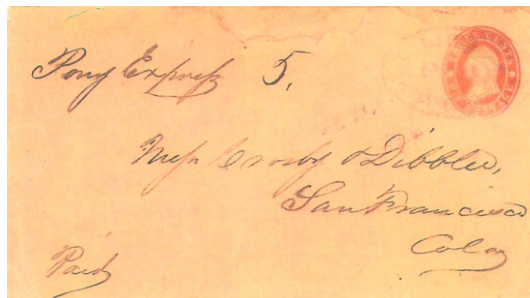 Pony Express 5.
Mess Crosby & Dibblee,
San Francisco
Cala
Paid